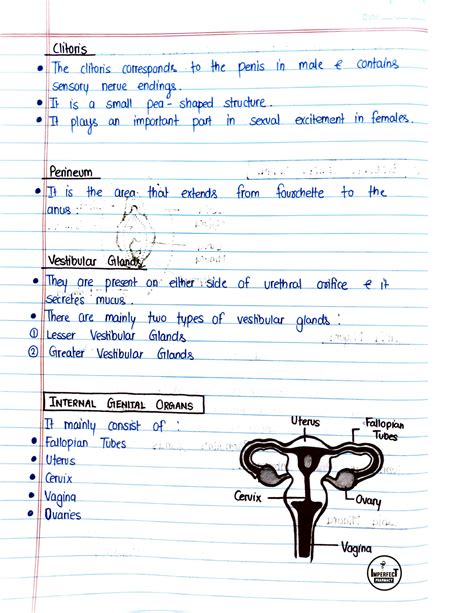 Date
Clitoris
• The clitoris corresponds to the penis in male & contains
sensory nerve endings.
• It is a small pea-shaped structure.
• It plays an important part in sexual excitement in females.
Perineum
• It is the area that extends from fourchette to the
anus.
Vestibular Glands
• They are present on either side of urethral orifice & it
secretes mucus.
• There are mainly two types of vestibular glands:
① Lesser Vestibular Glands
② Greater Vestibular Glands
INTERNAL GENITAL ORGANS
It mainly consist of :
• Fallopian Tubes
• Uterus
• Cervix
• Vagina
• Ovaries
Uterus
Fallopian
Tubes
Cervix
Ovary
Vagina
IMPERFECT
PHARMACY